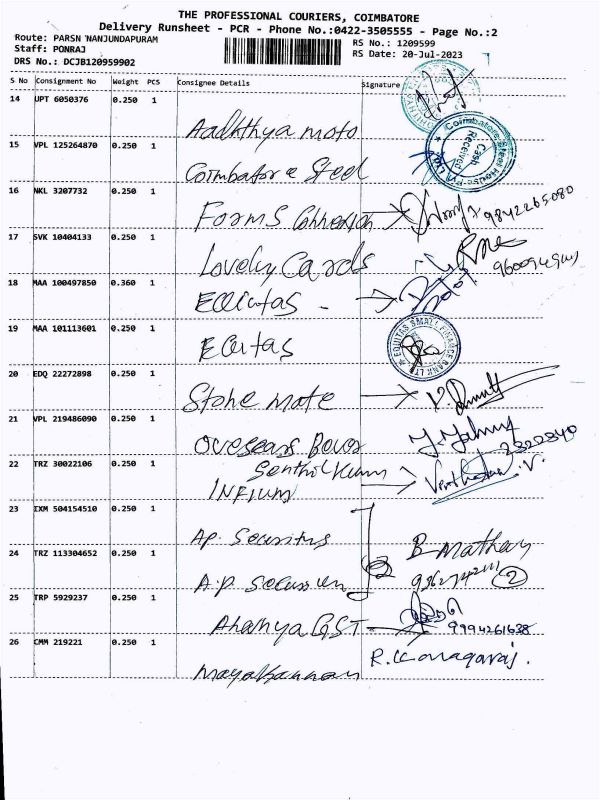 THE PROFESSIONAL COURIERS, COIMBATORE
Delivery Runsheet - PCR - Phone No.:0422-3505555 - Page No.:2
Route: PARSN NANJUNDAPURAM
RS No.: 1209599
Staff: PONRAJ
RS Date: 20-Jul-2023
DRS No.: DCJB120959902
S No Consignment No Weight PCS Consignee Details Signature
14 UPT 6050376 0.250 1
Aadhthya moto
15 VPL 125264870 0.250 1
Coimbatore Steel
Coimbatore Steel House
Cash
Received
16 NKL 3207732 0.250 1
Forms Connexion
9842265080
17 SVK 10404133 0.250 1
Lovely Cards
18 MAA 100497850 0.360 1
19 MAA 101113601 0.250 1
EQUITAS SMALL FINANCE BANK LTD
20 EDQ 22272898 0.250 1
Stone mate
21 VPL 219486090 0.250 1
Overseas
22 TRZ 30022106 0.250 1
Senthil Kumar
INFIUM
23 IXM 504154510 0.250 1
Ap. Securitus
24 TRZ 113304652 0.250 1
A.P
B Mathew
2
25 TRP 5929237 0.250 1
Ahanya GST
9994261638
26 CMM 219221 0.250 1
Mayakannan
R. Kanagaraj.